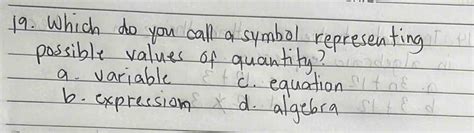 19. Which do you call a symbol representing
possible values of quantity?
a. variable c. equation
b. expression d. algebra